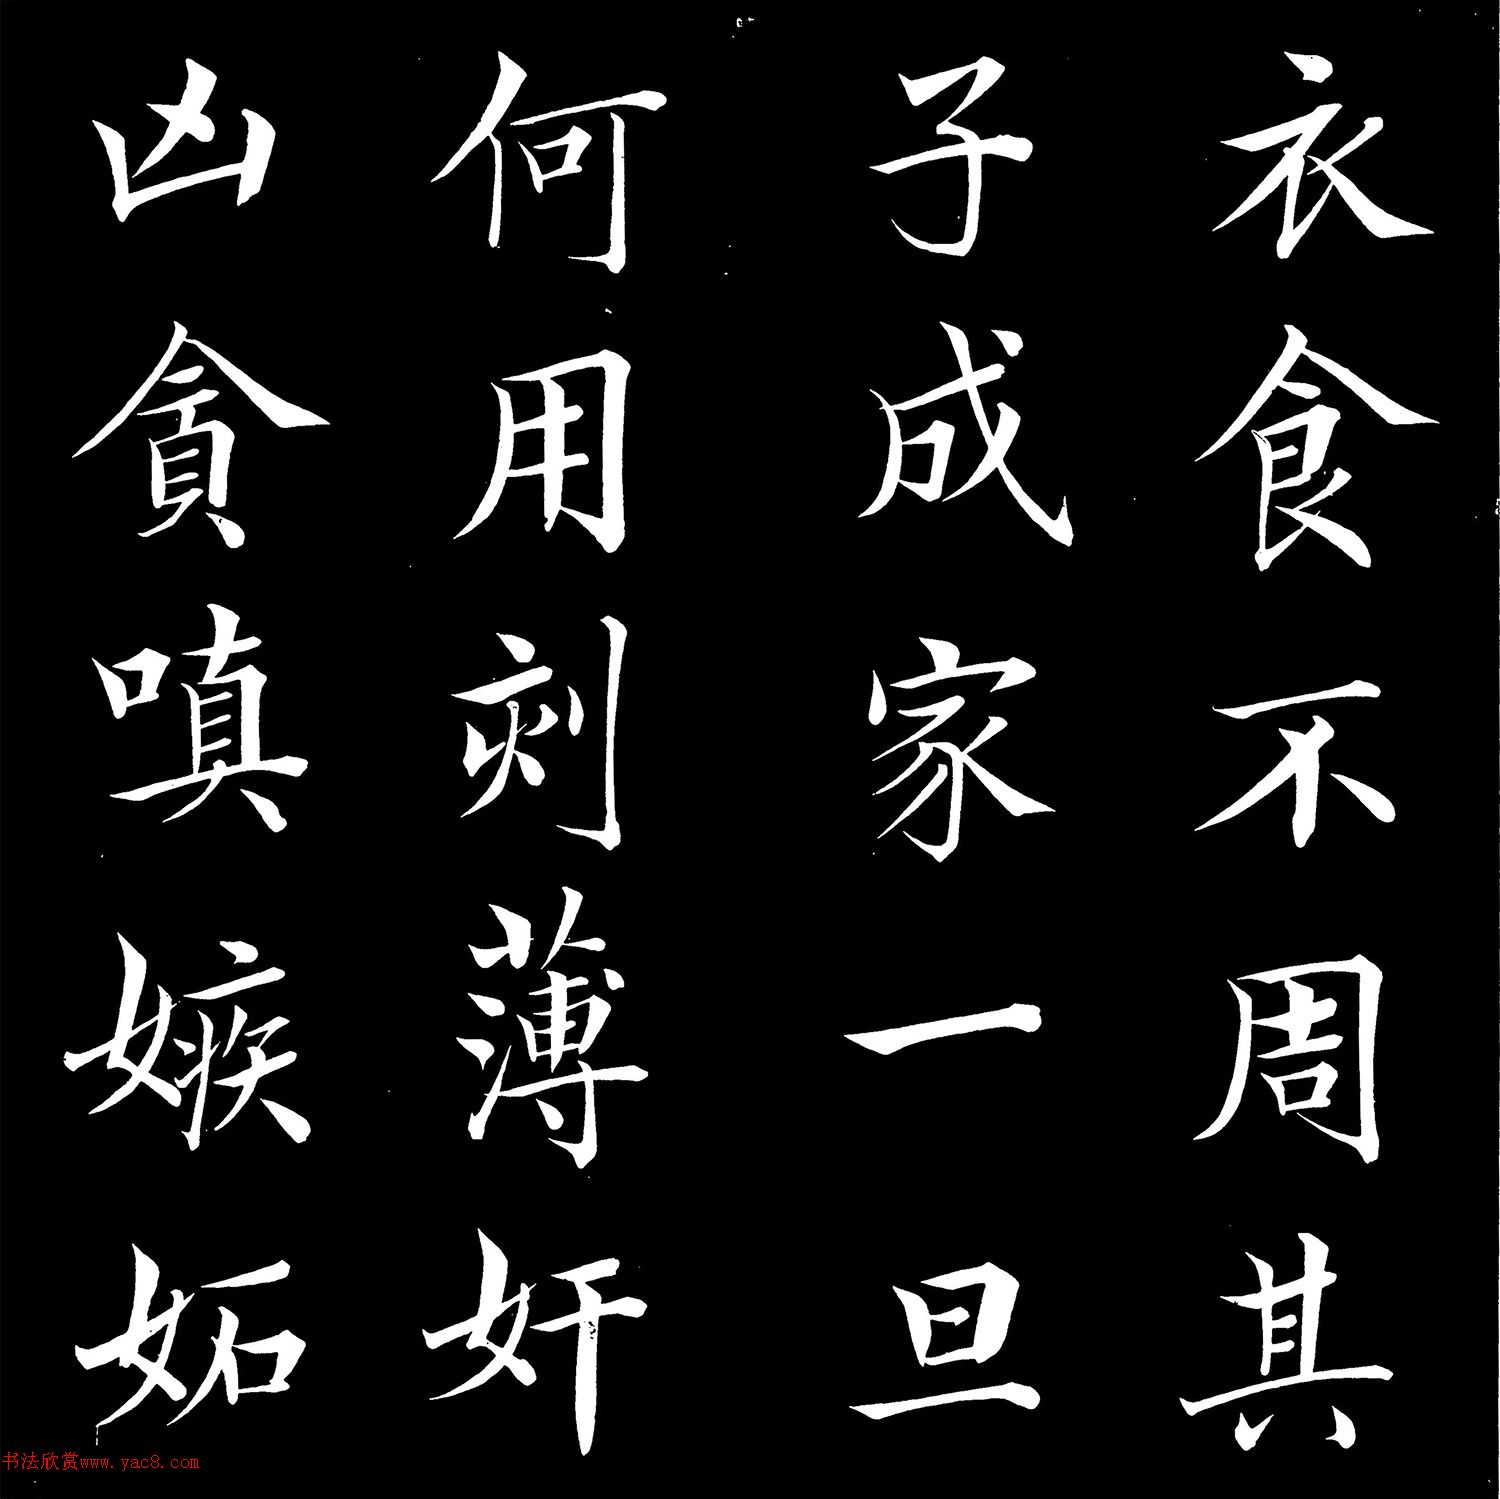 衣食不周其
子成家一旦
何用刻薄奸
凶貪嗔嫉妬
书法欣赏www.yac8.com